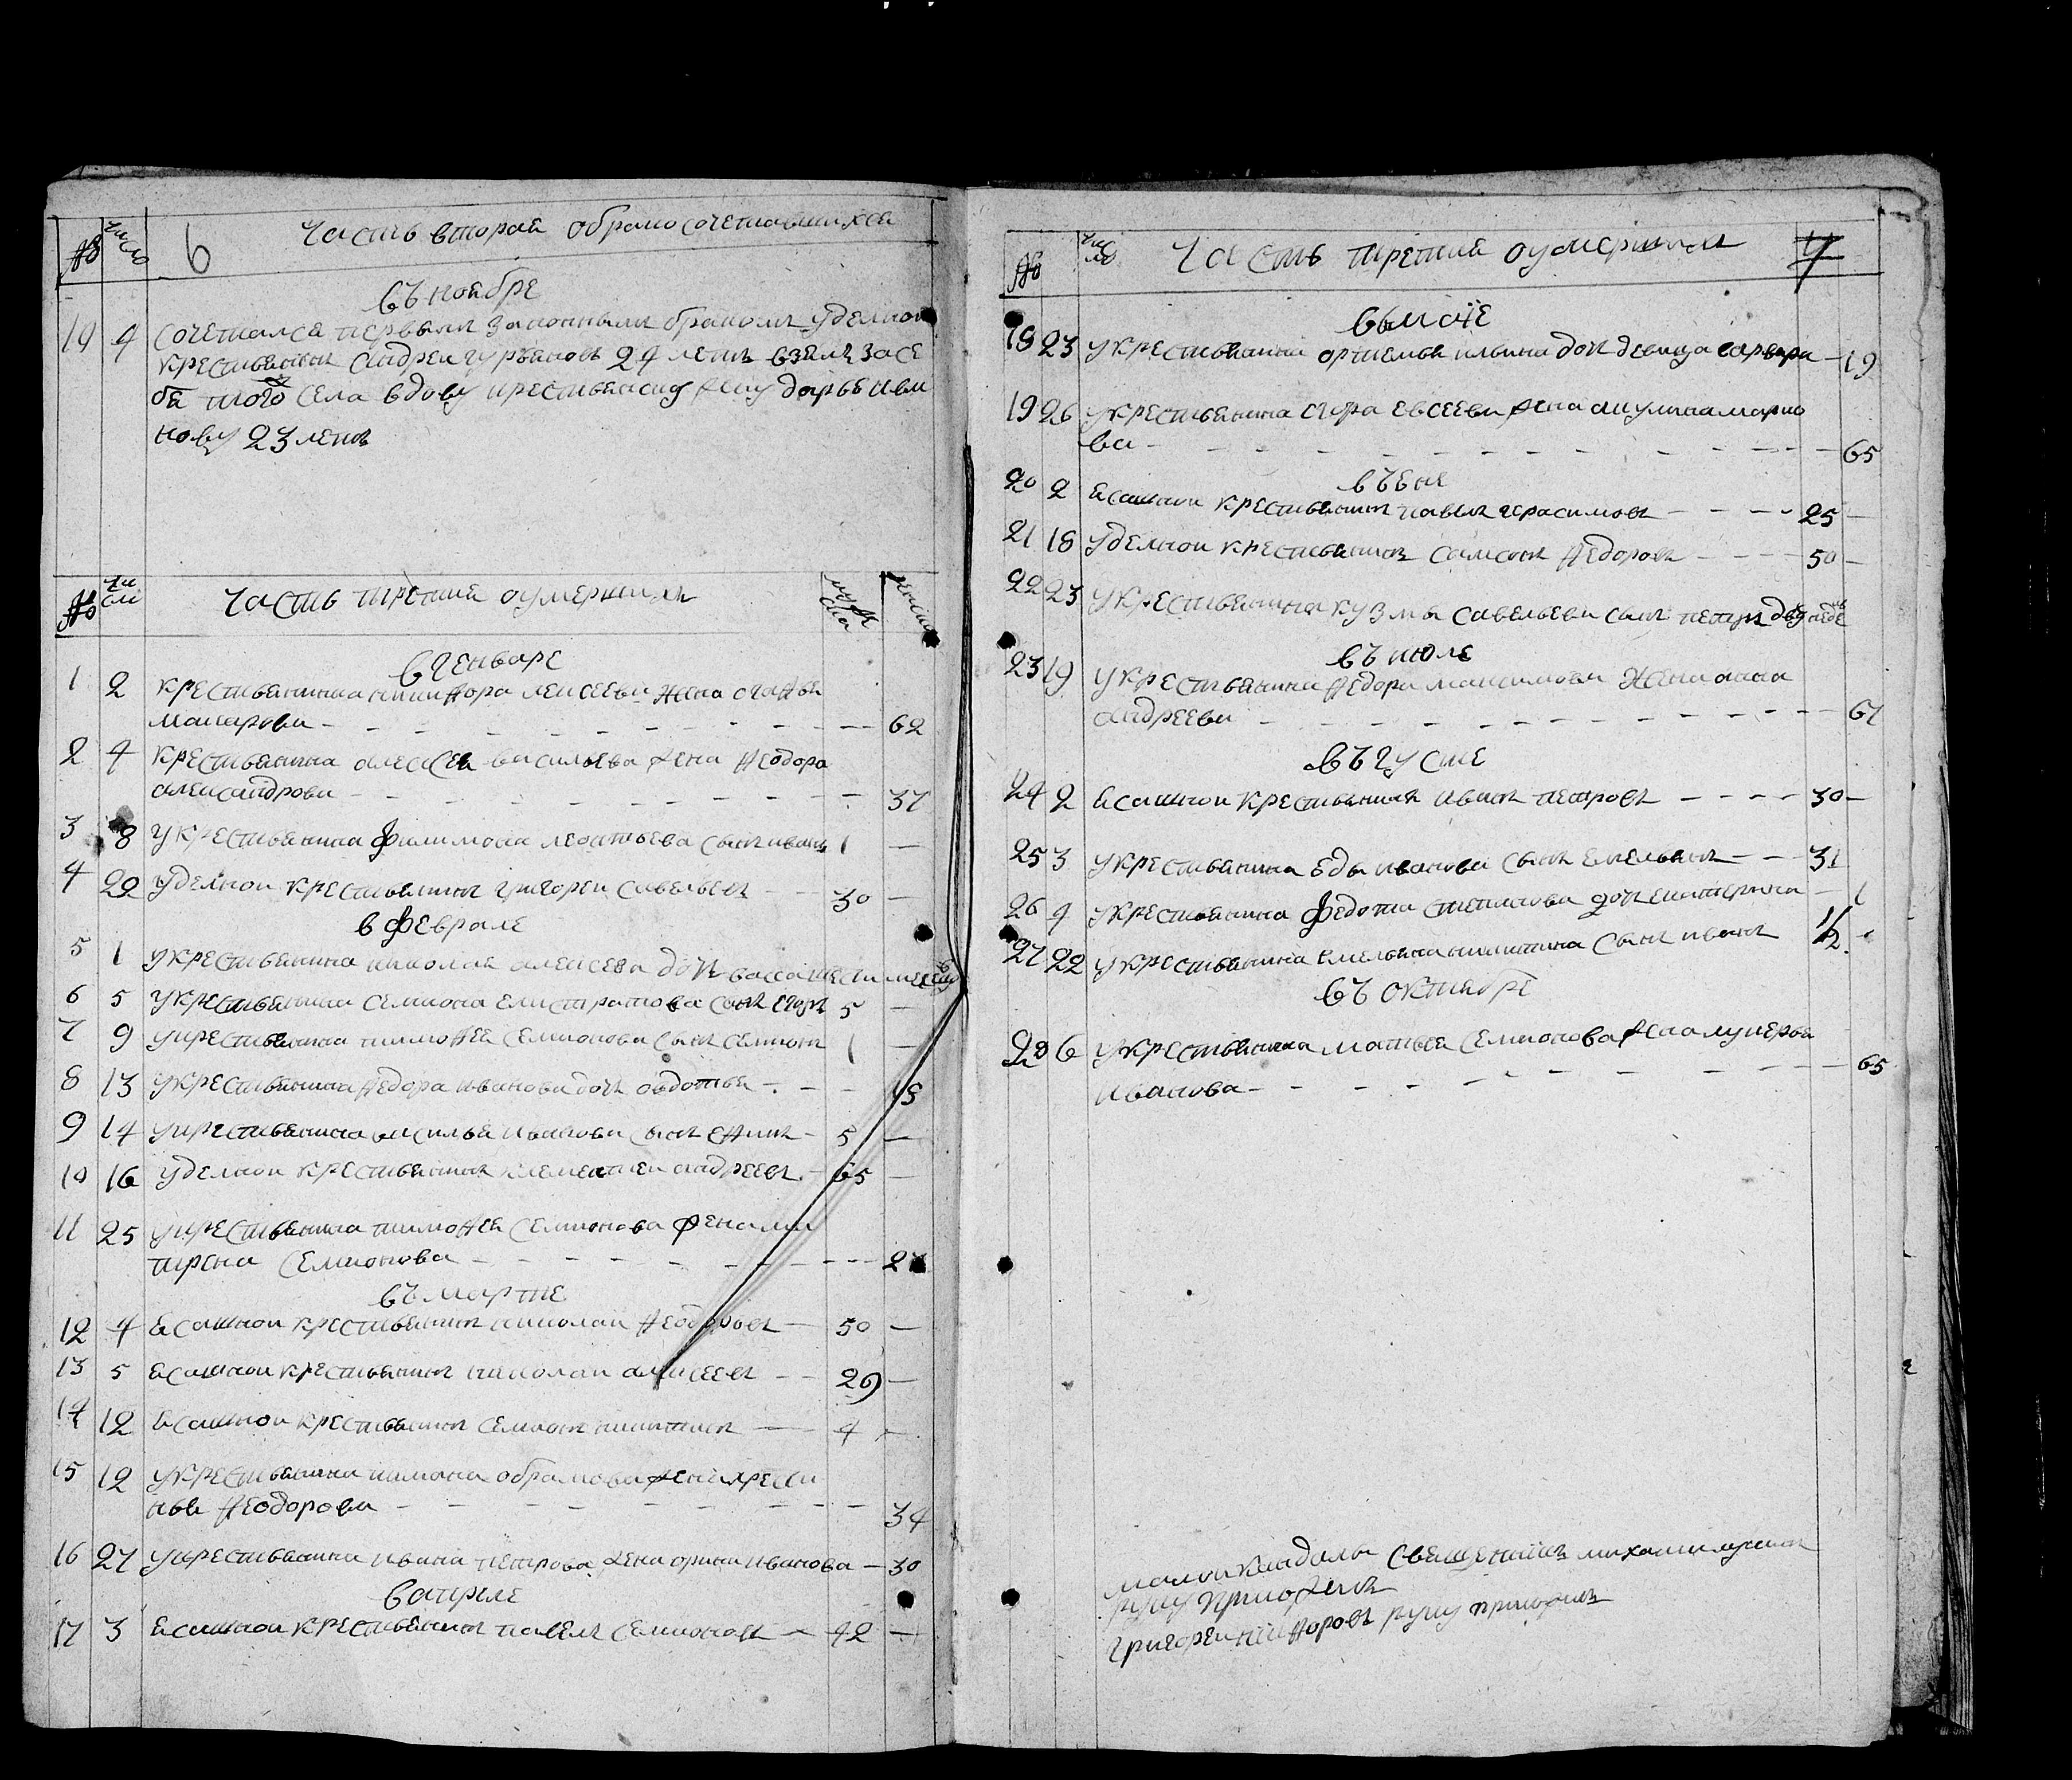 № число 6 Часть вторая обрако сочетавшихся
въ ноябре
10 4 сочетался первымъ законнымъ бракомъ уделнои
крестьянинъ Андреи гурьяновъ 24 летъ взялъ засе
бя того села вдову крестьянскую жену дарью ива
нову 23 летъ
№ чи сло Часть третия оумершихъ муж ска женска
в генваре
1 2 крестьянина никифора алексеева жена агафья
макарова 62
2 4 крестьянина алексея васильева жена феодора
александрова 37
3 8 у крестьянина филимона леонтьева сынъ иванъ 1
4 22 уделнои крестьянинъ григореи савельевъ 30
в феврале
5 1 укрестьянина николая алексеева дочь васса шести месецовъ
6 5 укрестьянина семиона елистратова сынъ егоръ 5
7 9 укрестьянина тимофея семионова сынъ семионъ 1
8 13 укрестьянина федора иванова дочь овдотья 15
9 14 укрестьянина василья иванова сынъ ефимъ 5
10 16 уделнои крестьянинъ клементеи андреевъ 65
11 25 укрестьянина тимофея семионова жена ма
трена семионова
въ марте
12 4 ясашнои крестьянинъ николаи феодоровъ 50
13 5 ясашнои крестьянинъ николаи алексеевъ 29
14 12 ясашнои крестьянинъ семионъ никитинъ 4
15 12 укрестьянина
феодорова 34
16 27 укрестьянина ивана петрова жена орина иванова 30
в априле
17 3 ясашнои крестьянинъ павелъ семионовъ 42
№ чи сло Часть третия оумершихъ 7
в маіе
18 23 укрестьянина ортемья ильина дочь девица варвара 19
19 26 укрестьянина егора евсеева жена акулина марко
ва 65
въ июне
20 2 ясашнои крестьянинъ павелъ герасимовъ 25
21 18 уделнои крестьянинъ самсонъ федоровъ 50
22 23 укрестьянина кузмы савельева сынъ петръ дву неде
въ июле
23 19 укрестьянина федора максимова жена анна
андреева 67
въ Августе
24 2 ясашнои крестьянинъ иванъ петровъ 30
25 3 укрестьянина иванова сынъ емельянъ 31
26 9 укрестьянина федота степанова дочь екатерина 1
27 22 укрестьянина емельяна никитина сынъ иванъ 1/2
въ октябре
28 6 укрестьянина матвея семионова жена лукерья
иванова 65
малои кандалы священникъ михаилъ
руку приложилъ
григореи никифоровъ руку приложилъ